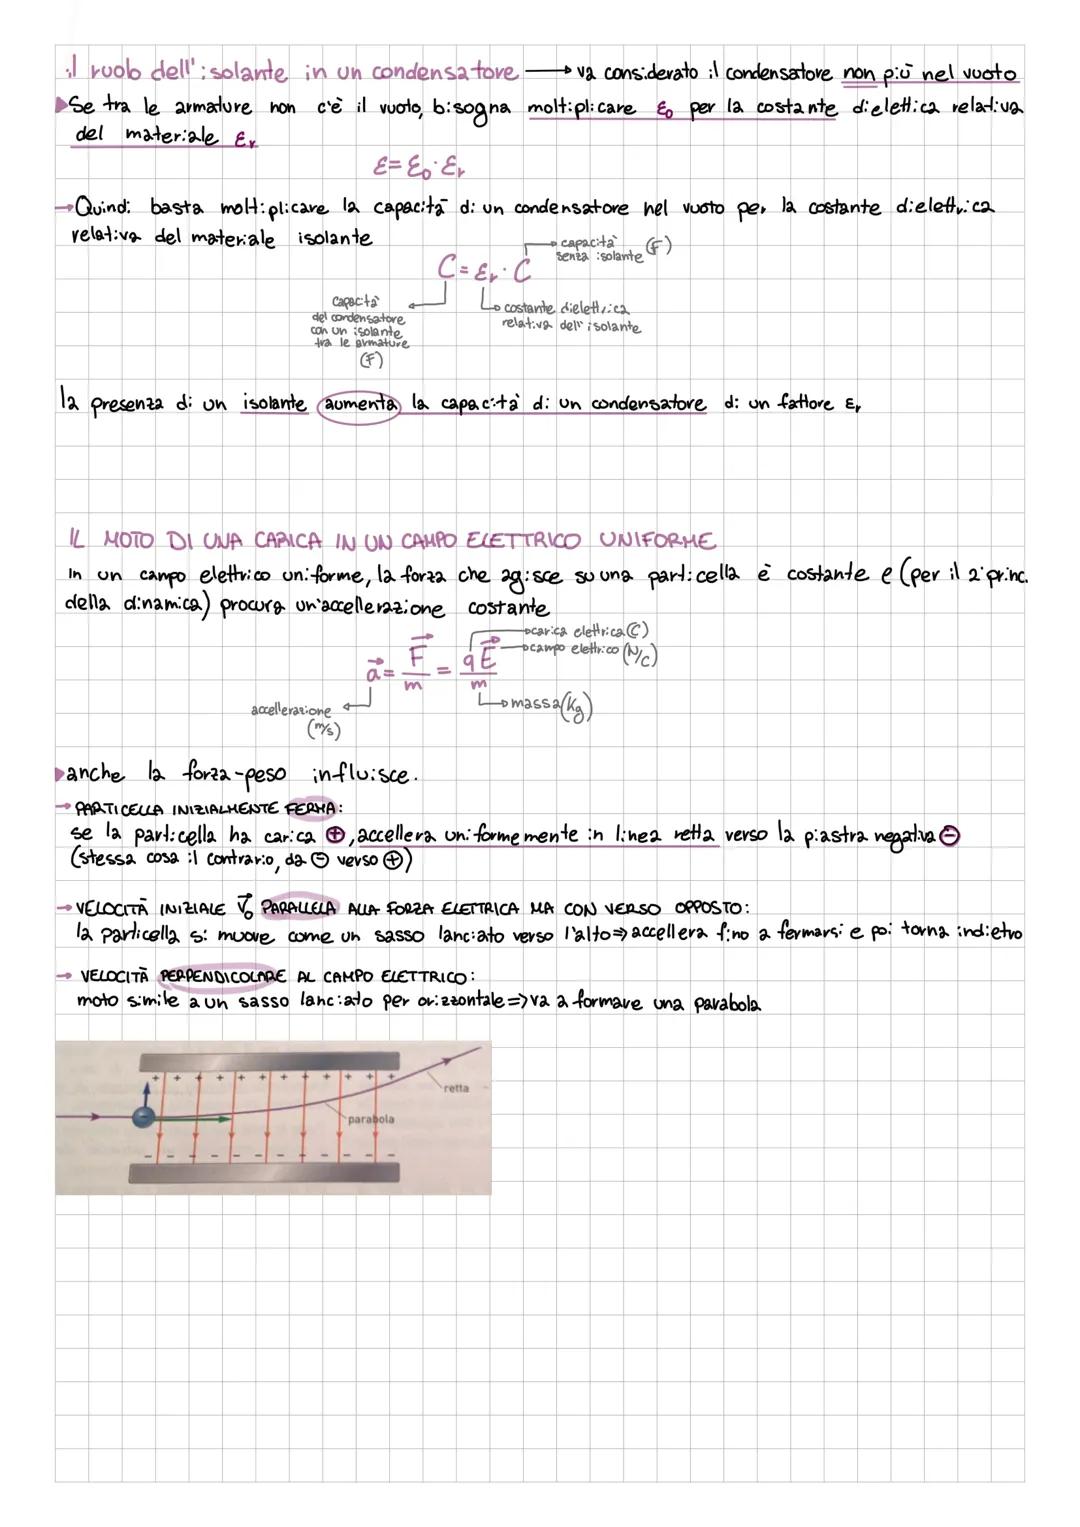 il ruolo dell'isolante in un condensatore → va considerato il condensatore non più nel vuoto
Se tra le armature non c'è il vuoto, bisogna moltiplicare ε₀ per la costante dielettica relativa
del materiale εᵣ
ε = ε₀ · εᵣ
→ Quindi basta moltiplicare la capacità di un condensatore nel vuoto per la costante dielettrica
relativa del materiale isolante
C = εᵣ · C
capacità
senza isolante (F)
capacità
del condensatore
con un isolante
tra le armature
(F)
costante dielettrica
relativa dell'isolante
la presenza di un isolante aumenta la capacità di un condensatore di un fattore εᵣ
IL MOTO DI UNA CARICA IN UN CAMPO ELETTRICO UNIFORME
In un campo elettrico uniforme, la forza che agisce su una particella è costante e (per il 2° princ.
della dinamica) procura un'accellerazione costante
a = F/m = qE/m
carica elettrica (C)
campo elettrico (N/C)
massa (kg)
accellerazione
(m/s)
anche la forza-peso influisce.
→ PARTICELLA INIZIALMENTE FERMA:
se la particella ha carica ⊕, accellera uniformemente in linea retta verso la piastra negativa ⊖
(stessa cosa il contrario, da ⊖ verso ⊕)
→ VELOCITÀ INIZIALE V₀ PARALLELA ALLA FORZA ELETTRICA MA CON VERSO OPPOSTO:
la particella si muove come un sasso lanciato verso l'alto ⇒ accellera fino a fermarsi e poi torna indietro
→ VELOCITÀ PERPENDICOLARE AL CAMPO ELETTRICO:
moto simile a un sasso lanciato per orizzontale => va a formare una parabola
+ + + + + + + + + + + +
retta
parabola
− − − − − − − − − − − −